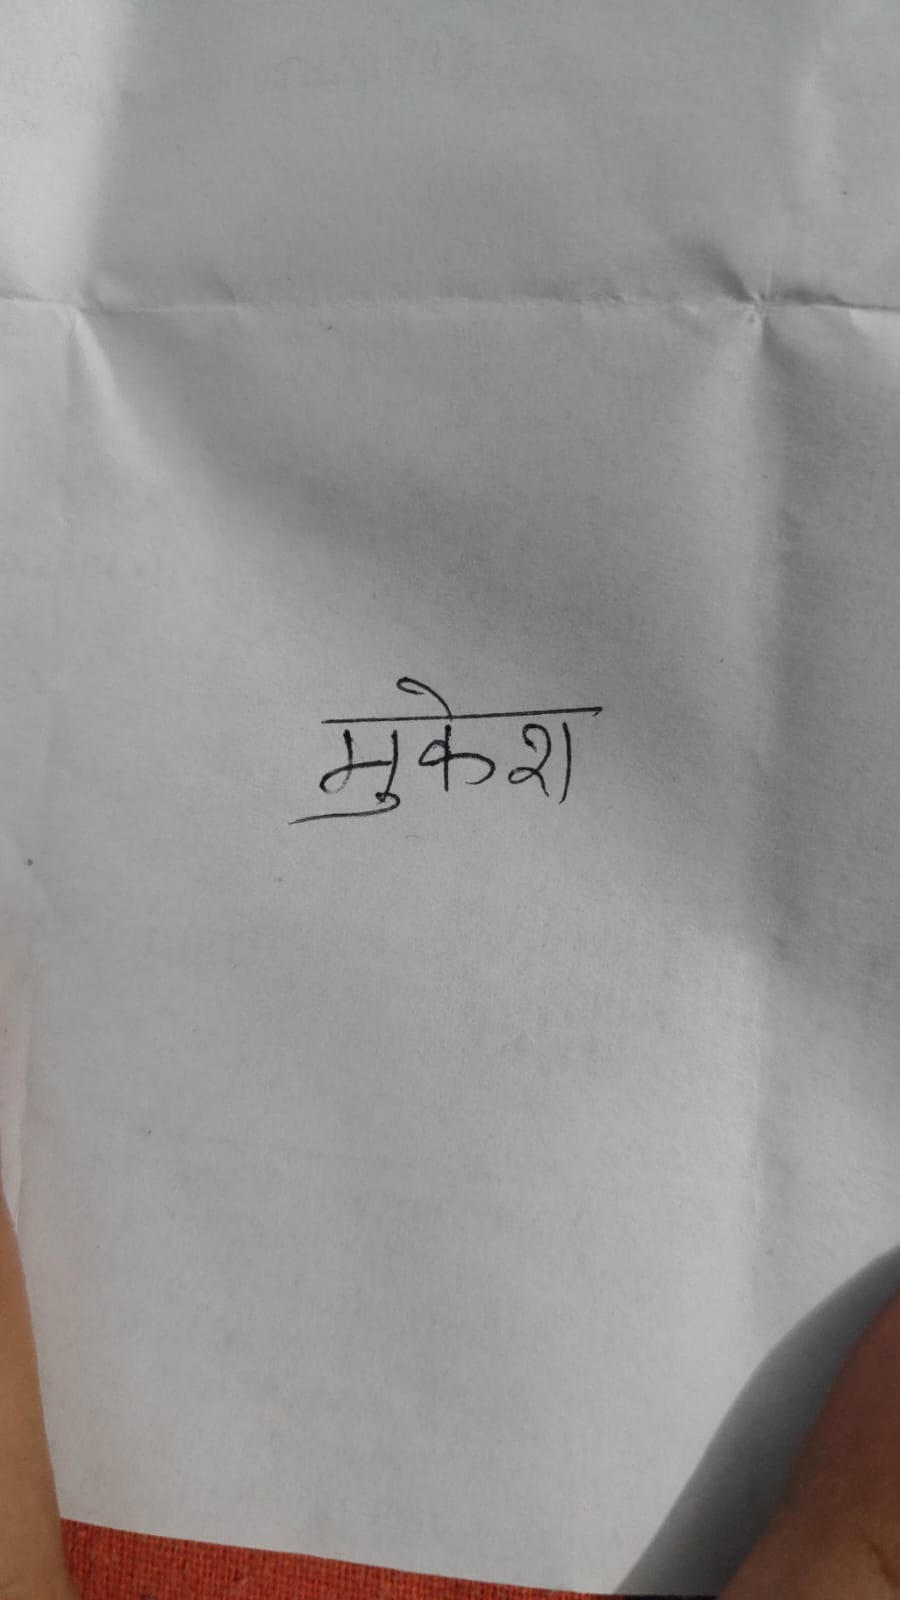 मुकेश